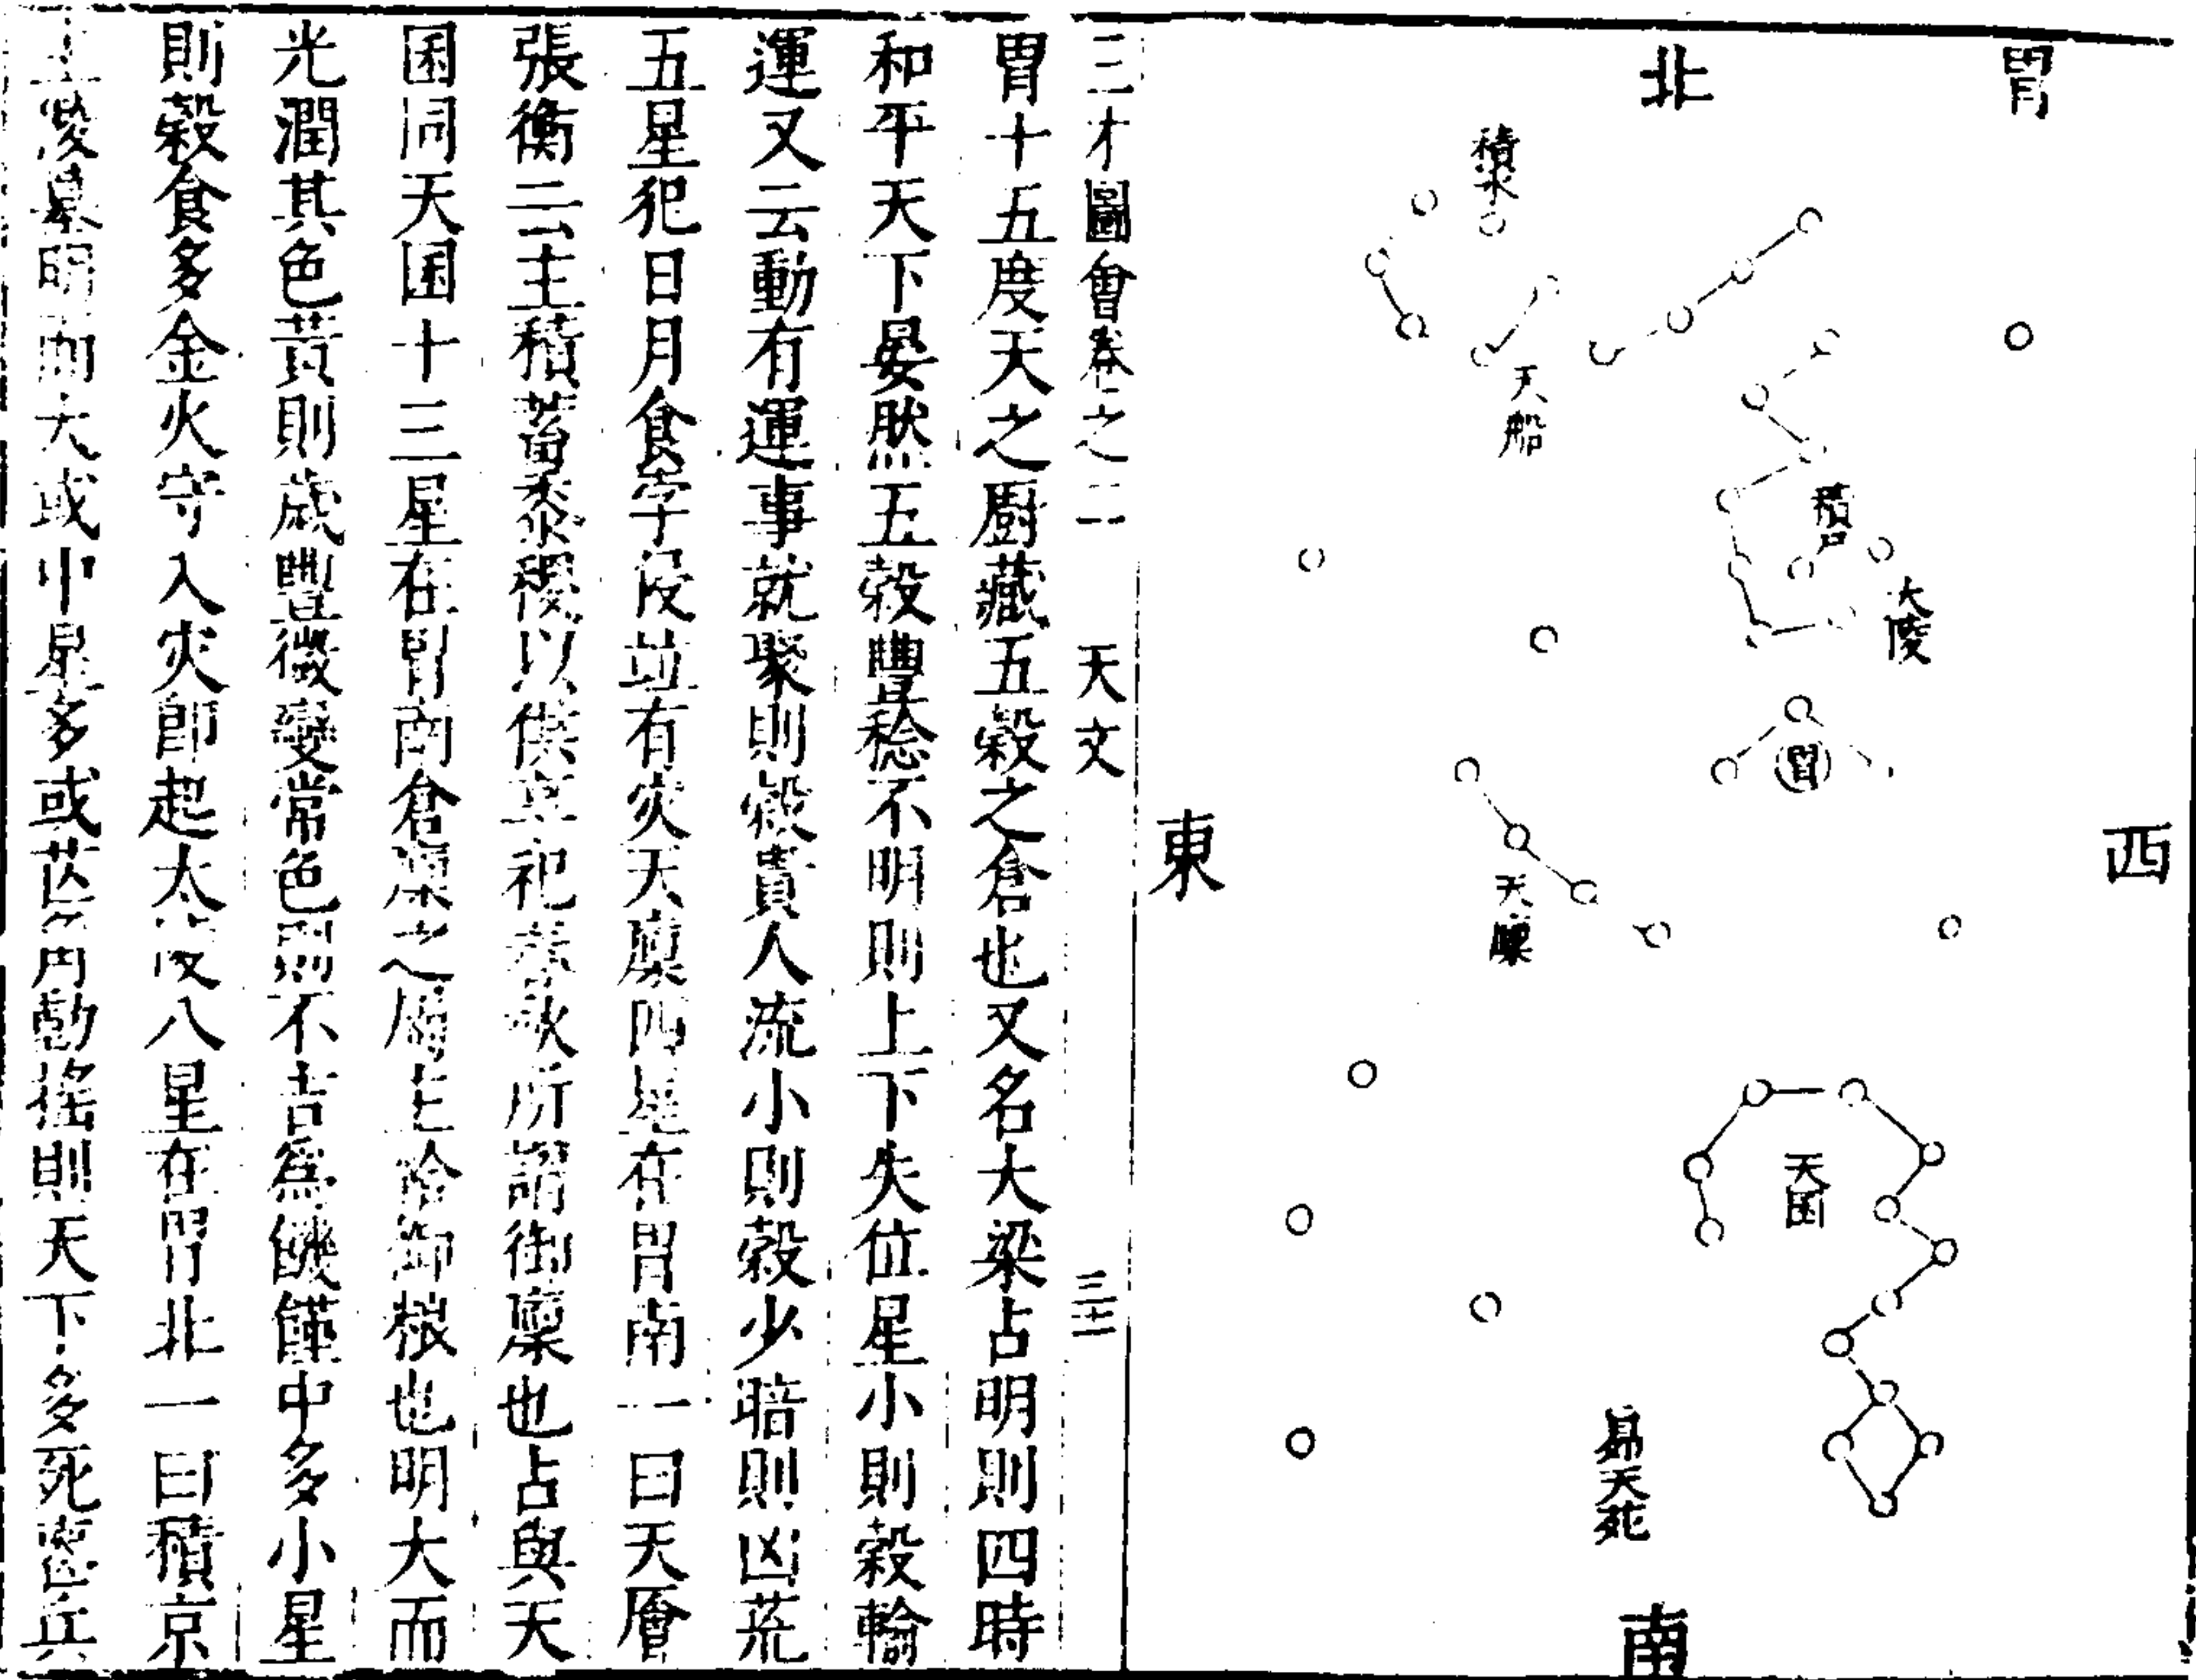 胃
北
積水
天船
積尸
大陵
胃
西
東
天廩
天囷
昴天苑
南
三才圖會卷之二 天文 三十二
胃十五度天之廚藏五穀之倉也又名大梁占明則四時
和平天下晏然五穀豐稔不明則上下失位星小則穀輸
運又云動有運事就聚則穀貴人流小則穀少暗則凶荒
五星犯日月食孛侵並有灾天廩四星在胃南一曰天廥
張衡云主積蓄黍稷以供享祀春秋所謂御廩也占與天
囷同天囷十三星在胃南倉廩之屬主給御粮也明大而
光潤其色黃則歲豐微變常色則不吉為饑饉中多小星
則穀食多金火守入灾即起太陵八星在胃北一曰積京
主陵墓明而大或中星多或芒角動搖則天下多死喪兵